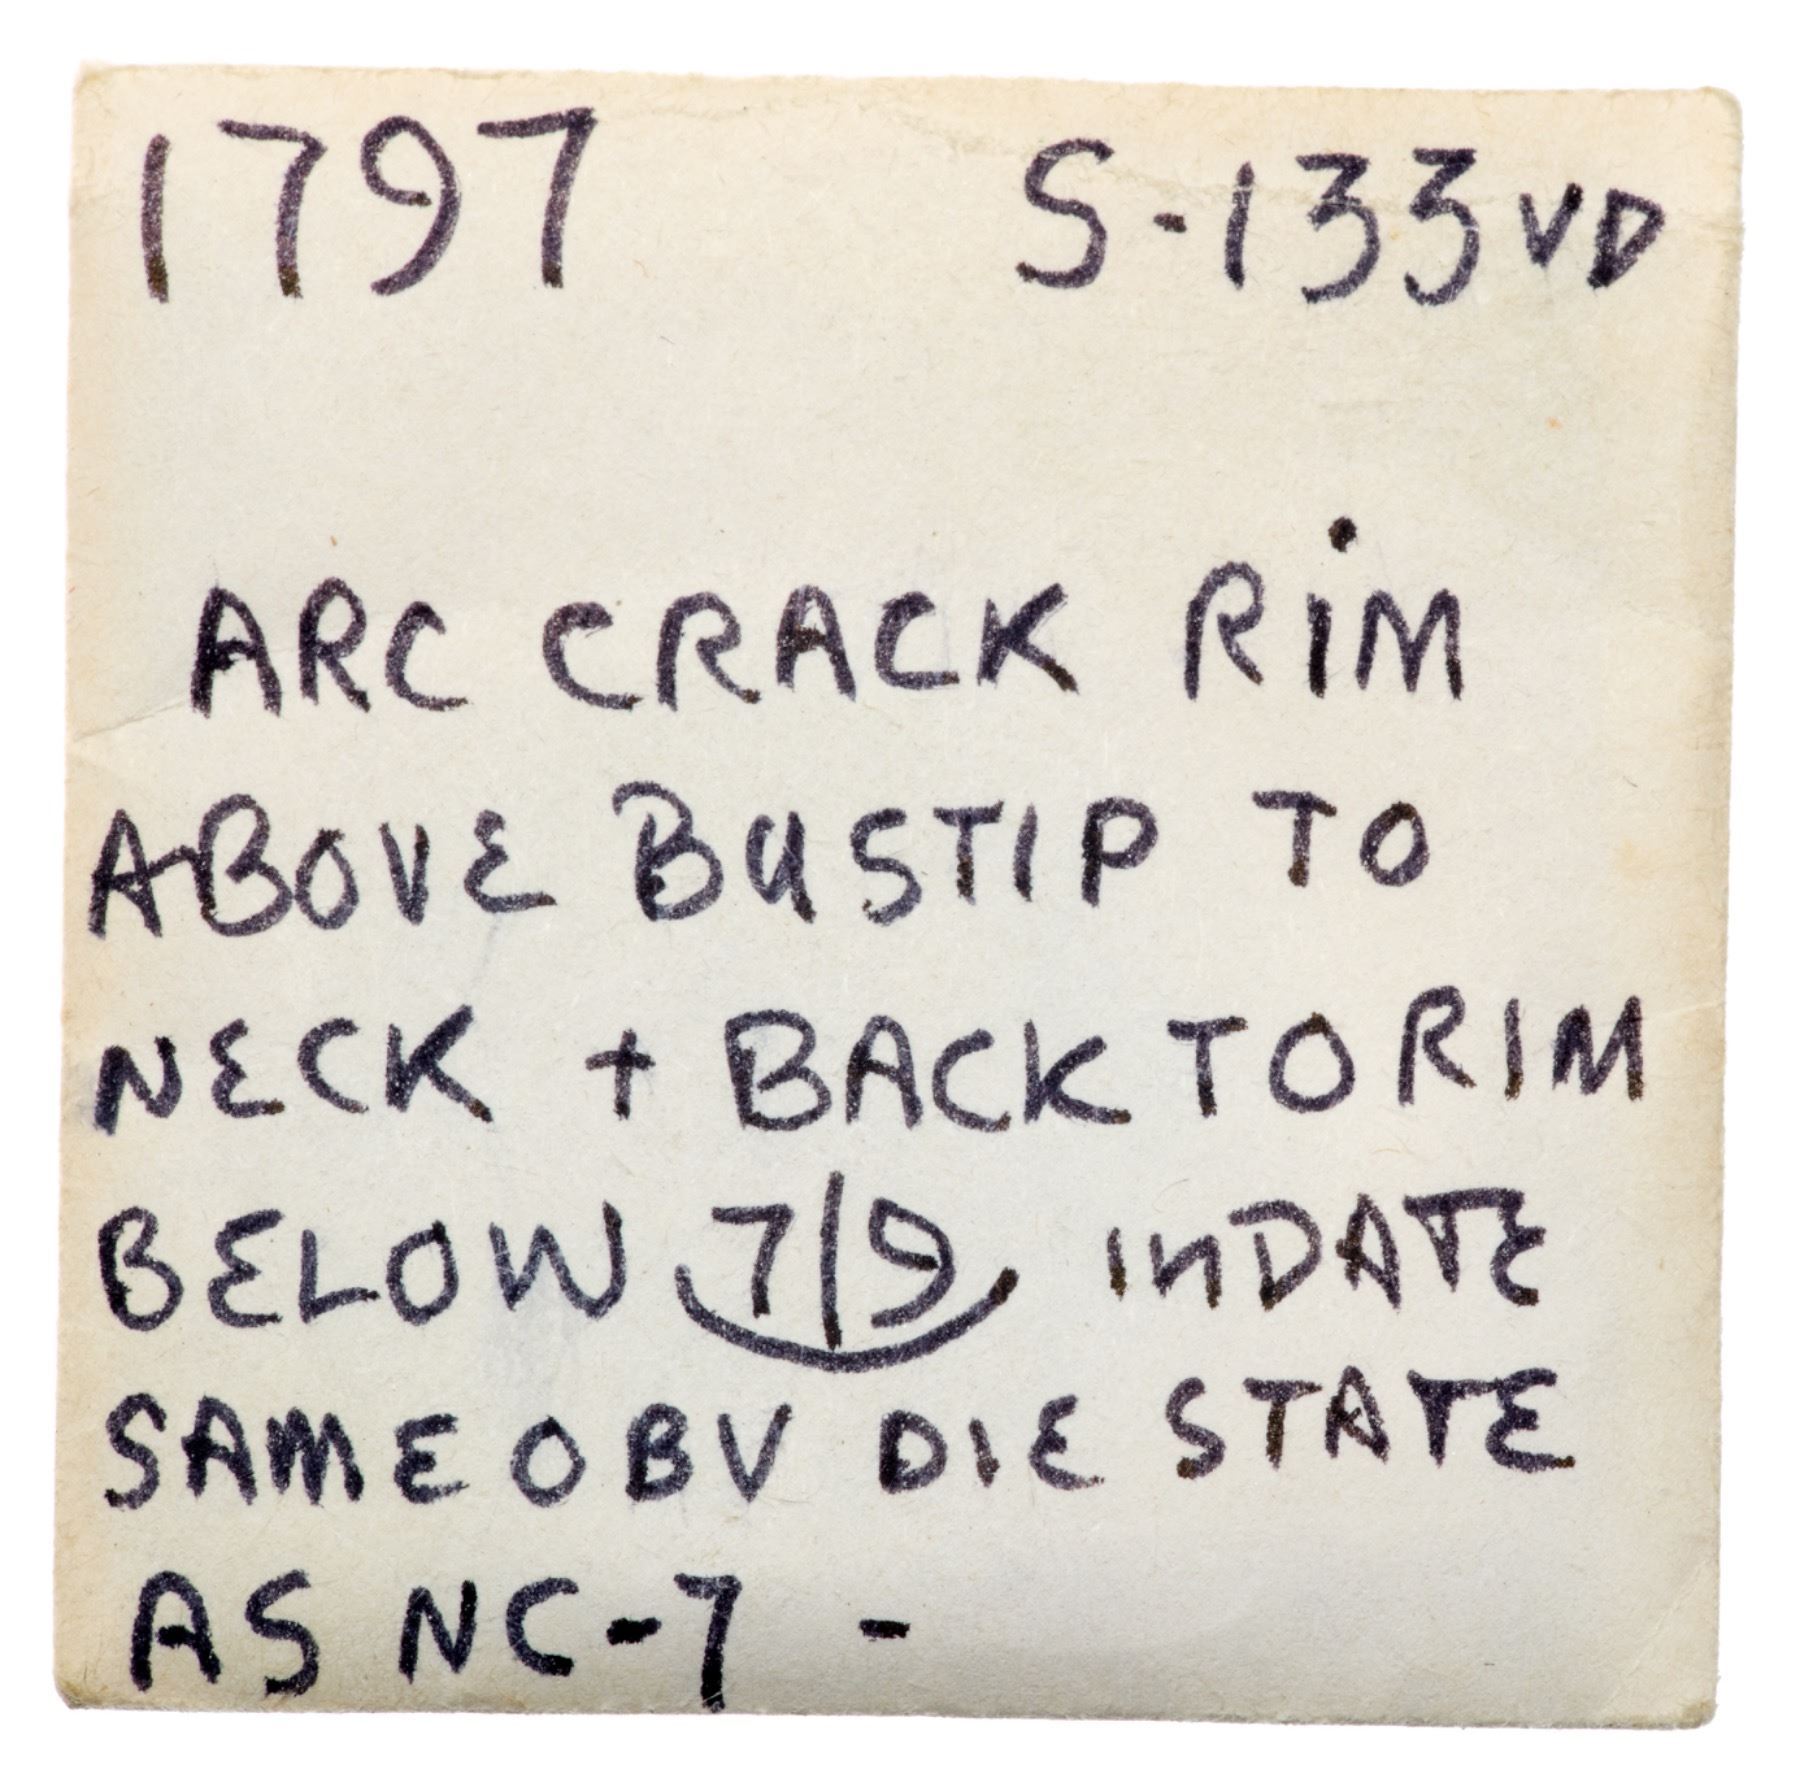 1797 S-133 VD
ARC CRACK RiM
ABOVE BUSTIP TO
NECK + BACK TO RIM
BELOW 7|9 INDATE
SAME OBV DIE STATE
AS NC-7 -